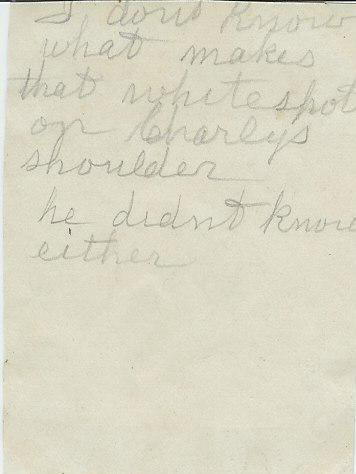 I dont know
what makes
that white spot
on Charlys
shoulder
he didnt know
either